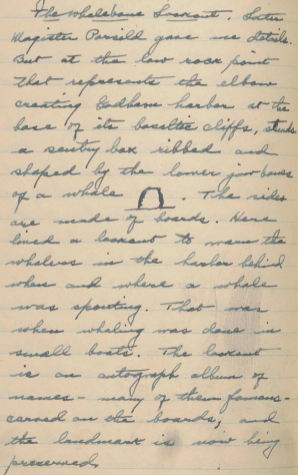 The Whalebone Lookout. Later
Magister Porsild gave me details.
But at the low rock point
that represents the elbow
creating Godhavn harbor at the
base of its basaltic cliffs, stands
a sentry box ribbed and
shaped by the lower jaw bones
of a whale. The sides
are made of boards. Here
lived a lookout to warn the
whalers in the harbor behind
when and where a whale
was spouting. That was
when whaling was done in
small boats. The lookout
is an autograph album of
names - many of them famous -
carved on the boards, and
the landmark is now being
preserved.